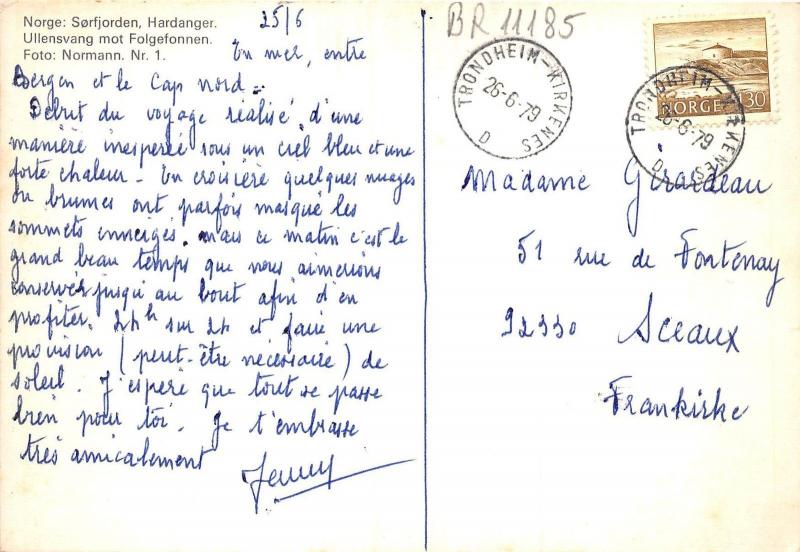 Norge: Sørfjorden, Hardanger.
Ullensvang mot Folgefonnen.
Foto: Normann. Nr. 1.
25/6
En mer, entre
Bergen et le Cap Nord.
Début du voyage réalisé d'une
manière inespérée sous un ciel bleu et une
forte chaleur - En croisière quelques nuages
ou brumes ont parfois masqué les
sommets enneigés. mais ce matin c'est le
grand beau temps que nous aimerions
conserver jusqu'au bout afin d'en
profiter. 24h sur 24 et faire une
provision (peut-être nécessaire) de
soleil. J'espère que tout se passe
bien pour toi. Je t'embrasse
très amicalement
Jenny
BR 11185
TRONDHEIM-KIRKENES
26-6-79
D
NORGE 30
TRONDHEIM-KIRKENES
26-6-79
D
Madame Girardeau
51 rue de Fontenay
92330 Sceaux
Frankirke